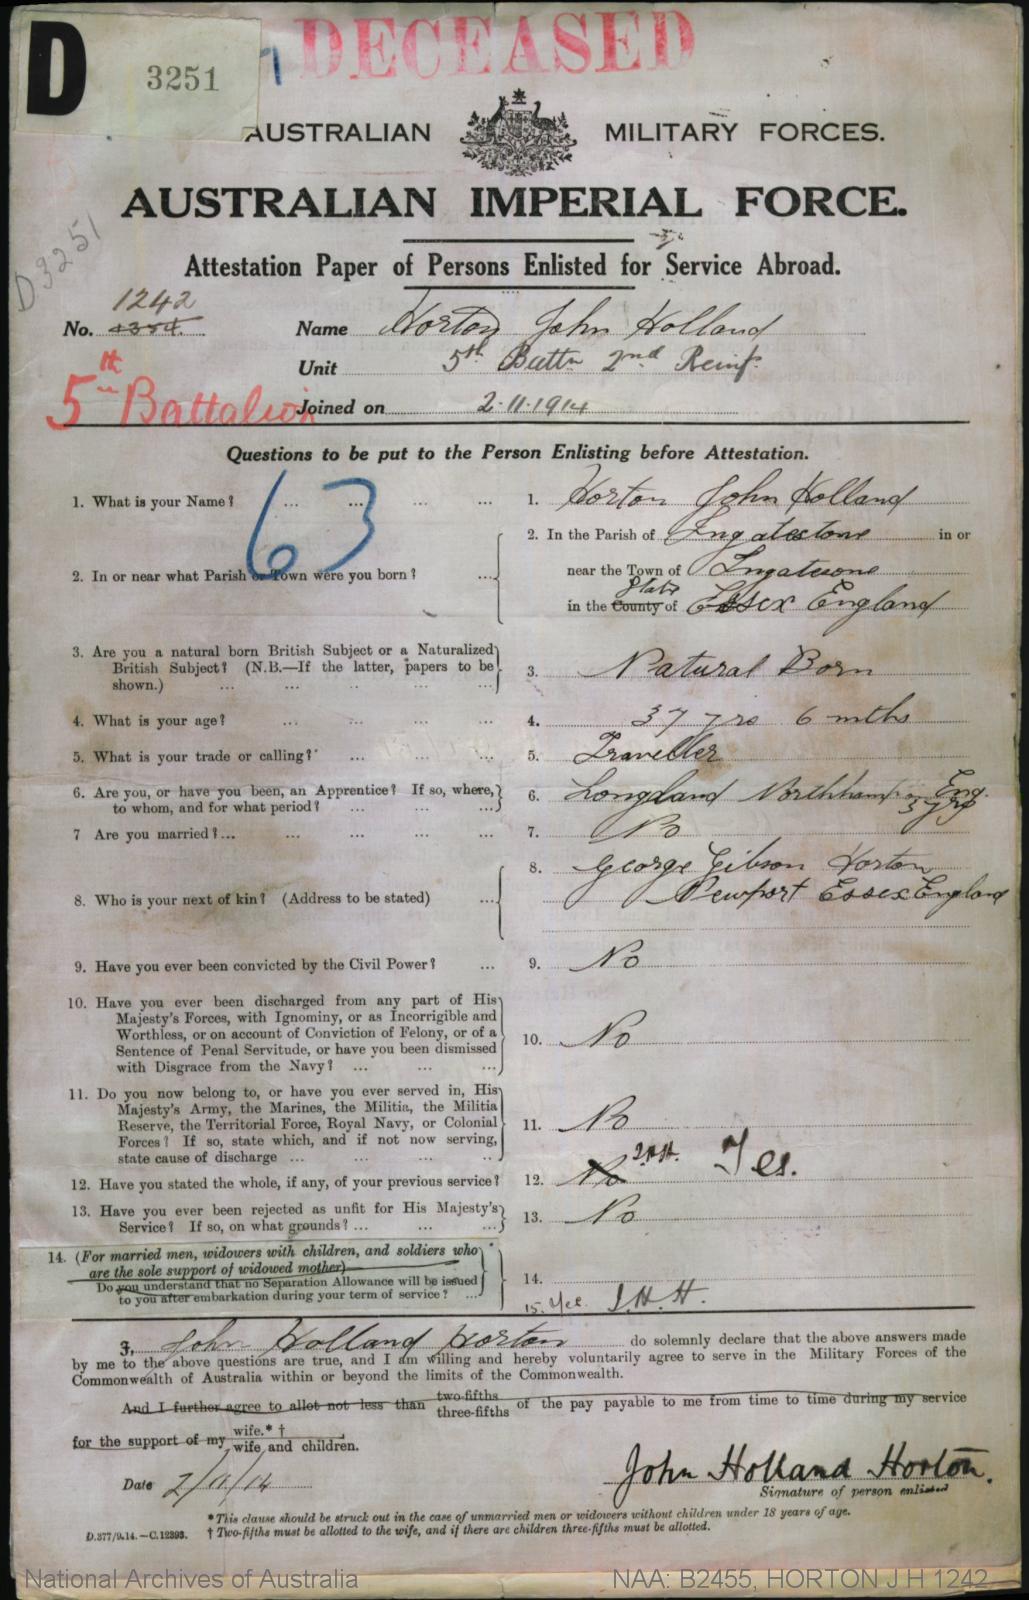 DECEASED
D 3251
AUSTRALIAN MILITARY FORCES.
AUSTRALIAN IMPERIAL FORCE.
D3251
Attestation Paper of Persons Enlisted for Service Abroad.
1242
No. Name Horton John Holland
Unit 5th Battn 2nd Reinf.
5th Battalion
Joined on 2.11.1914
Questions to be put to the Person Enlisting before Attestation.
63
1. What is your Name? ... ... ... ... 1. Horton John Holland
2. In or near what Parish or Town were you born? ... 2. In the Parish of Ingatestone in or
near the Town of Ingatestone
State
in the County of Essex England
3. Are you a natural born British Subject or a Naturalized
British Subject? (N.B.—If the latter, papers to be
shown.) ... ... .. ... ... 3. Natural Born
4. What is your age? ... ... ... ... 4. 37 yrs 6 mths
5. What is your trade or calling? ... ... ... 5. Traveller
6. Are you, or have you been, an Apprentice? If so, where,
to whom, and for what period? ... ... ... 6. Longland Northampton Eng.
5 yrs
7 Are you married?... ... ... ... ... 7. No
8. Who is your next of kin? (Address to be stated) ... 8. George Gibson Horton
Newport Essex England
9. Have you ever been convicted by the Civil Power? ... 9. No
10. Have you ever been discharged from any part of His
Majesty's Forces, with Ignominy, or as Incorrigible and
Worthless, or on account of Conviction of Felony, or of a
Sentence of Penal Servitude, or have you been dismissed
with Disgrace from the Navy? ... ... ... 10. No
11. Do you now belong to, or have you ever served in, His
Majesty's Army, the Marines, the Militia, the Militia
Reserve, the Territorial Force, Royal Navy, or Colonial
Forces? If so, state which, and if not now serving,
state cause of discharge ... ... ... .. 11. No
12. Have you stated the whole, if any, of your previous service? 12. No J.H.H. Yes.
13. Have you ever been rejected as unfit for His Majesty's
Service? If so, on what grounds? ... ... ... 13. No
14. (For married men, widowers with children, and soldiers who
are the sole support of widowed mother)—
Do you understand that no Separation Allowance will be issued
to you after embarkation during your term of service? ... 14.
15. Yes. J.H.H.
I, John Holland Horton do solemnly declare that the above answers made
by me to the above questions are true, and I am willing and hereby voluntarily agree to serve in the Military Forces of the
Commonwealth of Australia within or beyond the limits of the Commonwealth.
And I further agree to allot not less than two-fifths three-fifths of the pay payable to me from time to time during my service
for the support of my wife.* † wife and children.
Date 2/11/14
John Holland Horton.
Signature of person enlisted
* This clause should be struck out in the case of unmarried men or widowers without children under 18 years of age.
D.377/9.14.—C.12393. † Two-fifths must be allotted to the wife, and if there are children three-fifths must be allotted.
National Archives of Australia NAA: B2455, HORTON J H 1242